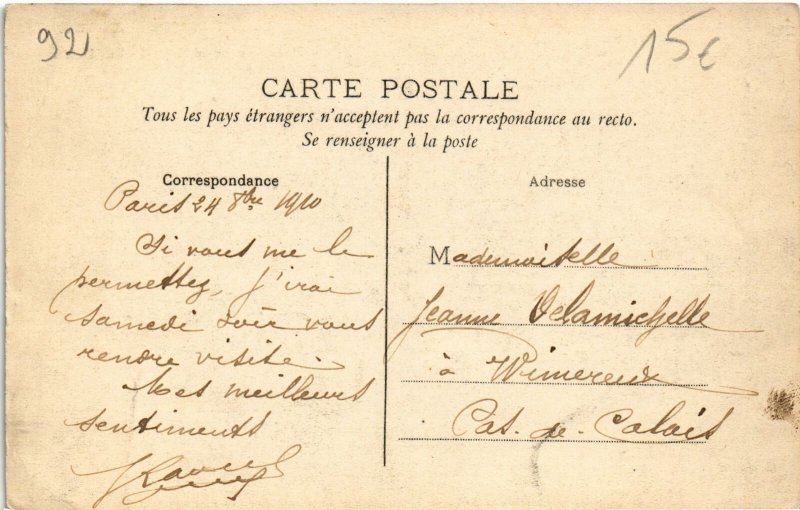 92
15€
CARTE POSTALE
Tous les pays étrangers n'acceptent pas la correspondance au recto.
Se renseigner à la poste
Correspondance
Paris 24 8bre 1910
Si vous me le
permettez, j'irai
samedi soir vous
rendre visite.
Mes meilleurs
sentiments
Adresse
Mademoiselle
Jeanne Delamichelle
à Wimereux
Pas-de-Calais